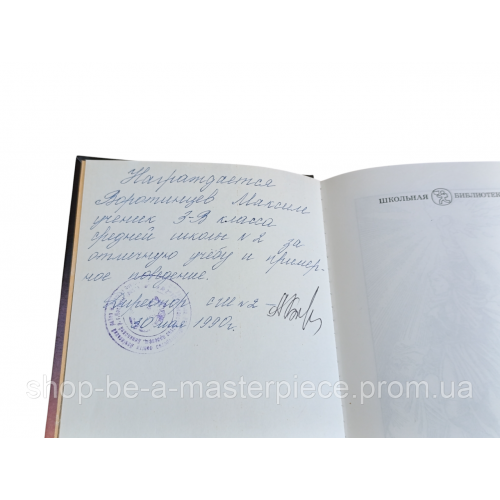 Награждается
Воротынцев Максим
ученик 3-В класса
средней школы №2 за
отличную учёбу и пример-
ное поведение.
Директор сш №2
30 мая 1990г.
ШКОЛЬНАЯ БИБЛИОТЕК
shop-be-a-masterpiece.prom.ua